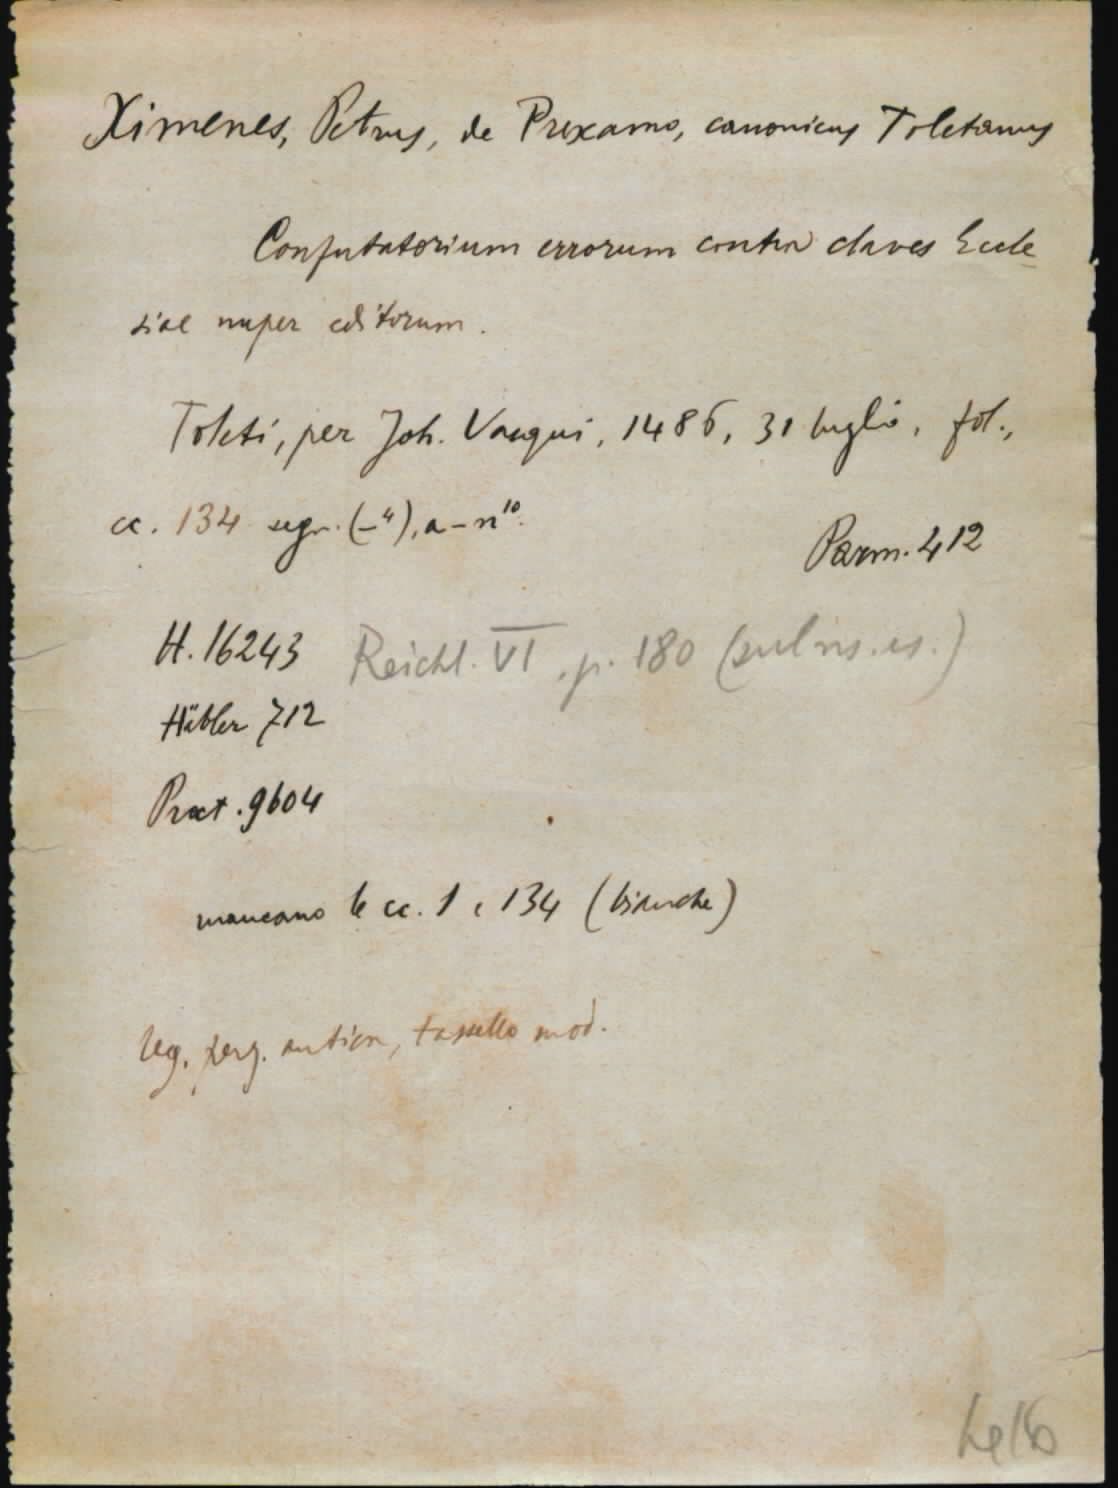 Ximenes, Petrus, de Prexamo, canonicus Toletanus
Confutatorium errorum contra claves Eccle
siae nuper editorum.
Toleti, per Joh. Vasqui, 1486, 31 luglio, fol.,
cc. 134 segn. (–⁴), a–n¹⁰.
Parm. 412
H. 16243 Reichl. VI, p. 180
Häbler 712
Proct. 9604
mancano le cc. 1 e 134 (bianche)
leg. perg. antica, tassello mod.